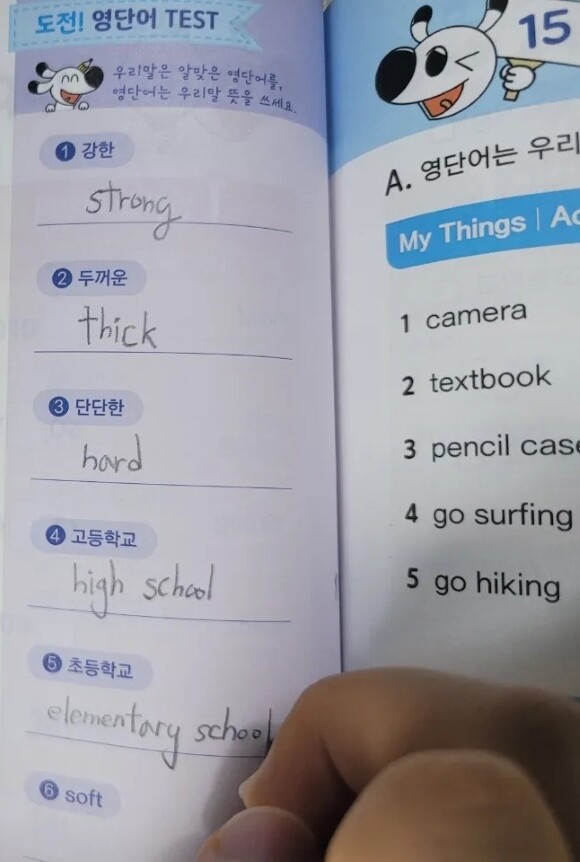 도전! 영단어 TEST
우리말은 알맞은 영단어를,
영단어는 우리말 뜻을 쓰세요.
1 강한
strong
2 두꺼운
thick
3 단단한
hard
4 고등학교
high school
5 초등학교
elementary school
6 soft
15
A. 영단어는 우리
My Things | Ac
1 camera
2 textbook
3 pencil case
4 go surfing
5 go hiking